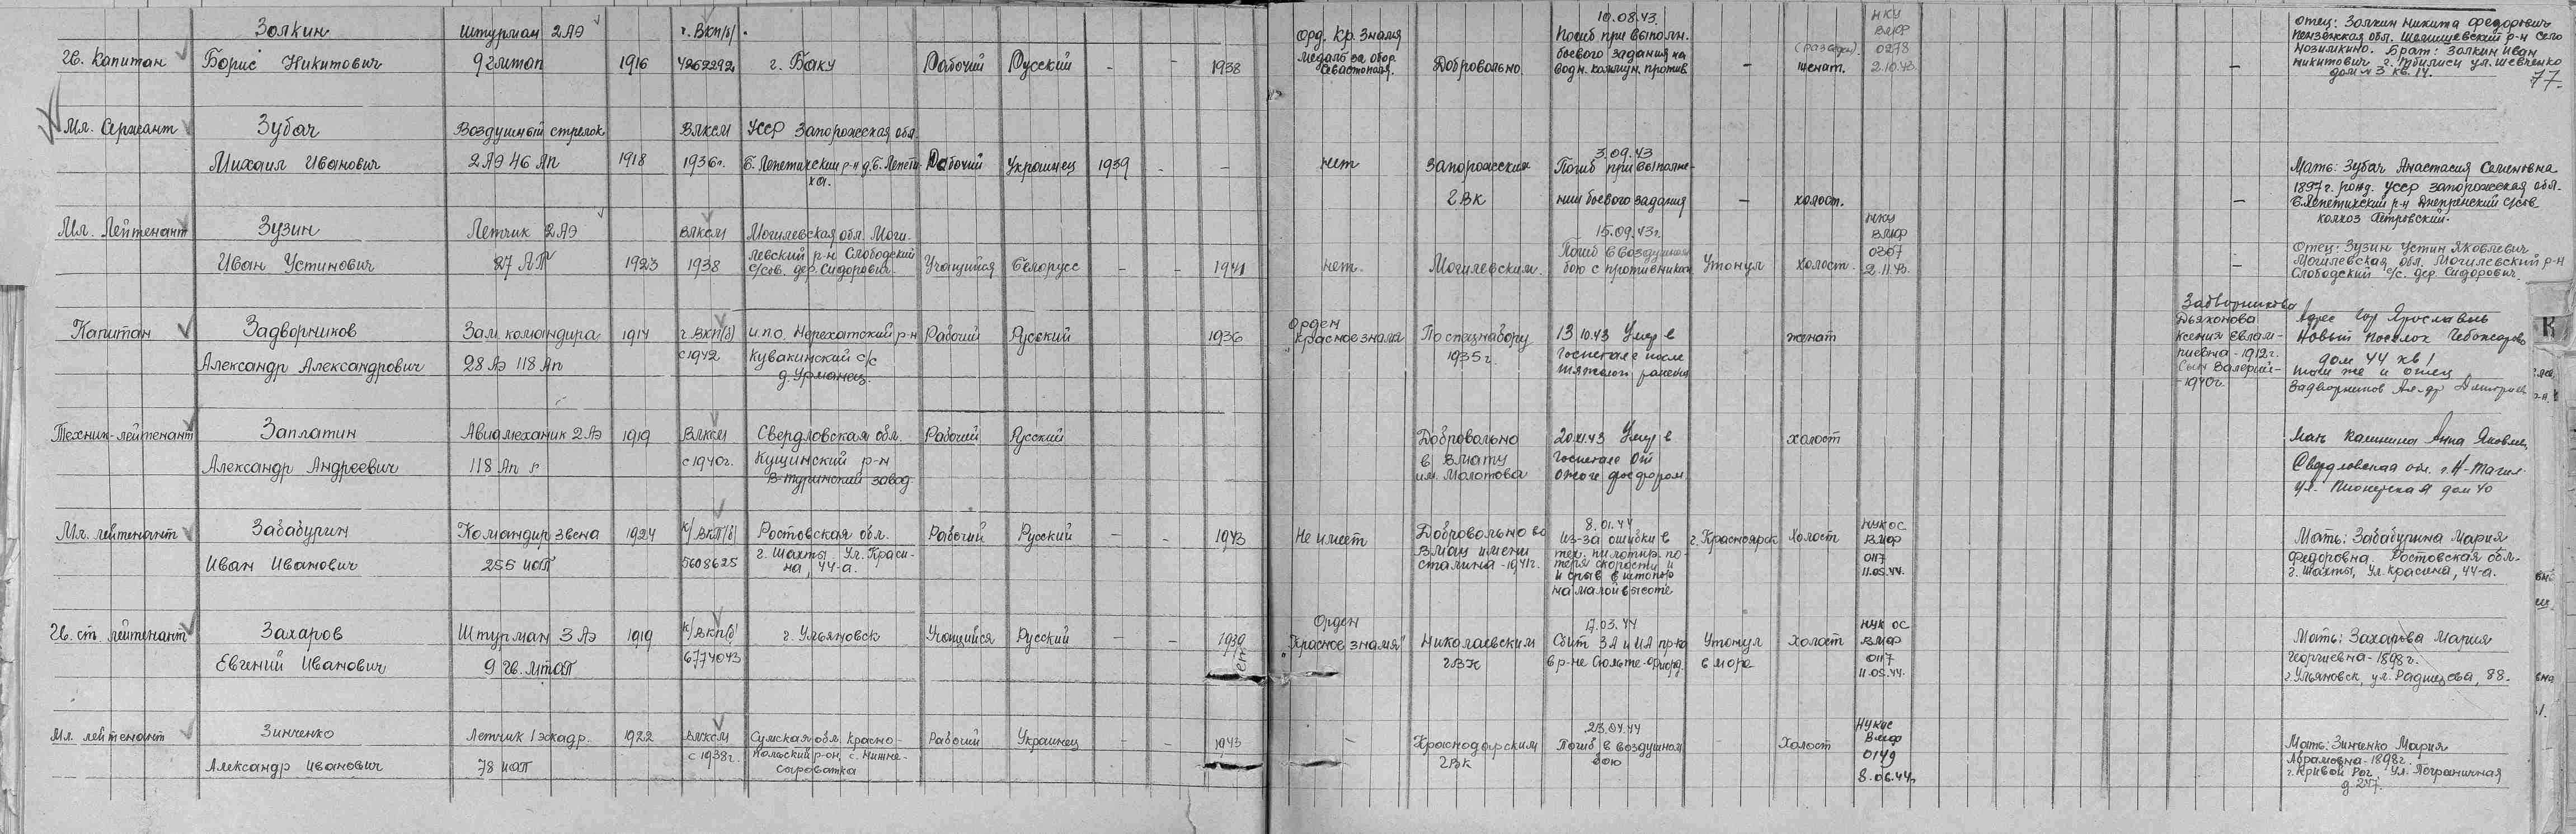 Гв. Капитан
Золкин
Борис Никитович
Штурман 2 АЭ
9 гв мтап
1916
г. ВКП/б/
4262292
г. Баку
Рабочий
Русский
-
-
1938
Орд. Кр. Знамя
Медаль за обор.
Севастополя.
Добровольно.
10.08.43.
Погиб при выполн.
боевого задания на
водн. коммун. против.
-
женат.
НКУ
ВМФ
0278
2.10.43.
-
отец: Золкин Никита Федорович
Пензенская обл. Шемышевский р-н село
Брат: Золкин Иван
Никитович г. Тбилиси ул. Шевченко
дом № 3 кв. 14.
77.
Мл. Сержант
Зубач
Михаил Иванович
Воздушный стрелок
2 АЭ 46 Ап
1918
ВЛКСМ
1936г.
УССР Запорожская обл.
Б. Лепетихский р-н д. Б. Лепети-
ха.
Рабочий
Украинец
1939
-
-
нет
Запорожским
ГВК
3.09.43
Погиб при выполне-
нии боевого задания
-
холост.
-
Мать: Зубач Анастасия Семеновна
1897г. рожд. УССР Запорожская обл.
Б. Лепетихский р-н Днепренский с/сов.
колхоз Петровский.
Мл. Лейтенант
Зузин
Иван Устинович
Летчик 2 АЭ
27 АП
1923
ВЛКСМ
1938
Могилевская обл. Моги-
левский р-н Слободский
с/сов. дер. Сидорович.
Учащийся
Белорусс
-
-
1941
нет.
Могилевским.
15.09.43г.
Погиб в воздушном
бою с противником
Утонул
холост.
НКУ
ВМФ
0307
2.11.43.
-
Отец: Зузин Устин Яковлевич
Могилевская обл. Могилевский р-н
Слободский с/с. дер. Сидорович.
Капитан
Задворников
Александр Александрович
Зам командира
28 Аэ 118 Ап
1914
г. ВКП(б)
с 1942
И.П.О. Нерехотский р-н
Кувакинский с/с
д. Урманец.
Рабочий
Русский
1936
Орден
"Красное знамя
По спецнабору
1935г.
13.10.43 Умер в
госпитале после
тяжелого ранения
женат
Задворникова
Дьяконова
Ксения Евлам-
пиевна - 1912г.
Сын Валерий-
- 1940г.
Адрес гор Ярославль
Новый поселок
дом 44 кв 1
там же и отец
Задворников Ал-др
Техник-лейтенант
Заплатин
Александр Андреевич
Авиамеханик 2 Аэ
118 Ап
1919
ВЛКСМ
с 1940г.
Свердловская обл.
Кущинский р-н
завод.
Рабочий
Русский
Добровольно
в ВМАТУ
им. Молотова
Умер в
госпитале от
ожога фосфором
холост
Мать Калинина Анна
Свердловская обл. г. Н-Тагил
ул. Пионерская дом 40
Мл. лейтенант
Забабурин
Иван Иванович
Командир звена
255 иап
1924
к/ВКП/б/
5608625
Ростовская обл.
г. Шахты Ул. Краси-
на, 44-а.
Рабочий
Русский
-
-
1943
Не имеет
Добровольно во
ВМАУ имени
Сталина - 1941г.
8.01.44
Из-за ошибки в
тех. пилотир. по-
теря скорости и
и срыв в штопор
на малой высоте
г. Красноярск
Холост
НУК ОС
ВМФ
0117
11.05.44.
Мать: Забабурина Мария
Федоровна, Ростовская обл.
г. Шахты, ул. Красина, 44-а.
Гв. ст. лейтенант
Захаров
Евгений Иванович
Штурман 3 Аэ
9 гв. мтап
1919
к/ВКП(б)
6774043
г. Ульяновск
Учащийся
Русский
-
-
1939
Орден
"Красное знамя"
Николаевским
ГВК
17.03.44
Сбит ЗА и ИА пр-ка
Утонул
в море
Холост
НУК ОС
ВМФ
0117
11.05.44.
Мать: Захарова Мария
Георгиевна - 1898г.
г. Ульяновск, ул. Радищева, 88.
Мл. лейтенант
Зинченко
Александр Иванович
Летчик 1 эскадр.
78 иап
1922
ВЛКСМ
с 1938г.
Сумская обл. Красно-
польский р-он, с. Нижне-
Сыроватка
Рабочий
Украинец
-
-
1943
-
Краснодарским
ГВК
23.04.44
Погиб в воздушном
бою
-
Холост
ВМФ
0149
8.06.44г.
Мать: Зинченко Мария
Абрамовна - 1898г.
г. Кривой Рог, ул. Пограничная
д 247.